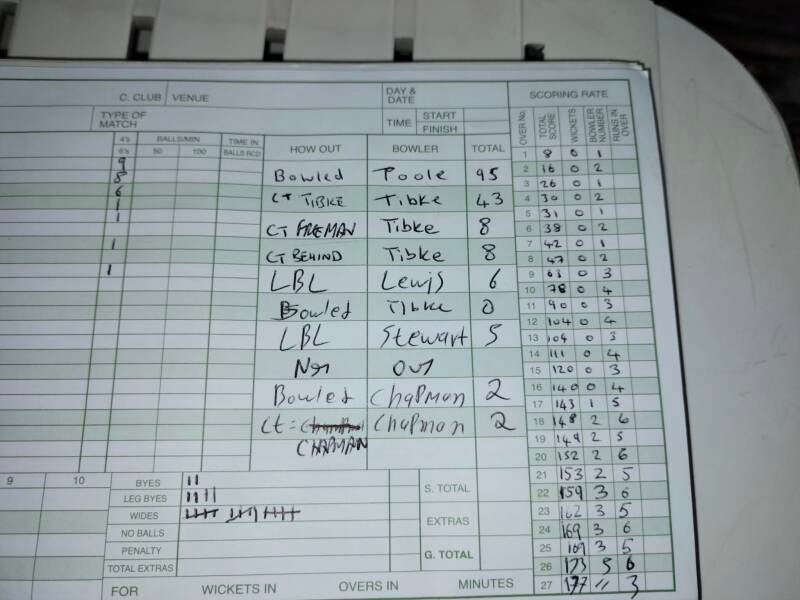 C. CLUB VENUE DAY & DATE SCORING RATE
TYPE OF MATCH TIME START FINISH
4's 6's BALLS/MIN 50 100 TIME IN BALLS RCD HOW OUT BOWLER TOTAL OVER No. TOTAL SCORE WICKETS BOWLER NUMBER RUNS IN OVER
9
8
6
1
1
1
1
Bowled Poole 95
CT TIBKE Tibke 43
CT FREMAN Tibke 8
CT BEHIND Tibke 8
LBL Lewis 6
Bowled Tibke 0
LBL Stewart 5
Not Out
Bowled Chapman 2
Ct = Chapman 2
CHAPMAN
1 8 0 1
2 16 0 2
3 26 0 1
4 30 0 2
5 31 0 1
6 38 0 2
7 42 0 1
8 47 0 2
9 63 0 3
10 78 0 4
11 90 0 3
12 104 0 4
13 104 0 3
14 111 0 4
15 120 0 3
16 140 0 4
17 143 1 5
18 148 2 6
19 149 2 5
20 152 2 6
21 153 2 5
22 159 3 6
23 162 3 5
24 169 3 6
25 169 3 5
26 173 5 6
27 177 " 3
9 10
BYES II
LEG BYES IIII
WIDES
NO BALLS
PENALTY
TOTAL EXTRAS
S. TOTAL
EXTRAS
G. TOTAL
FOR WICKETS IN OVERS IN MINUTES